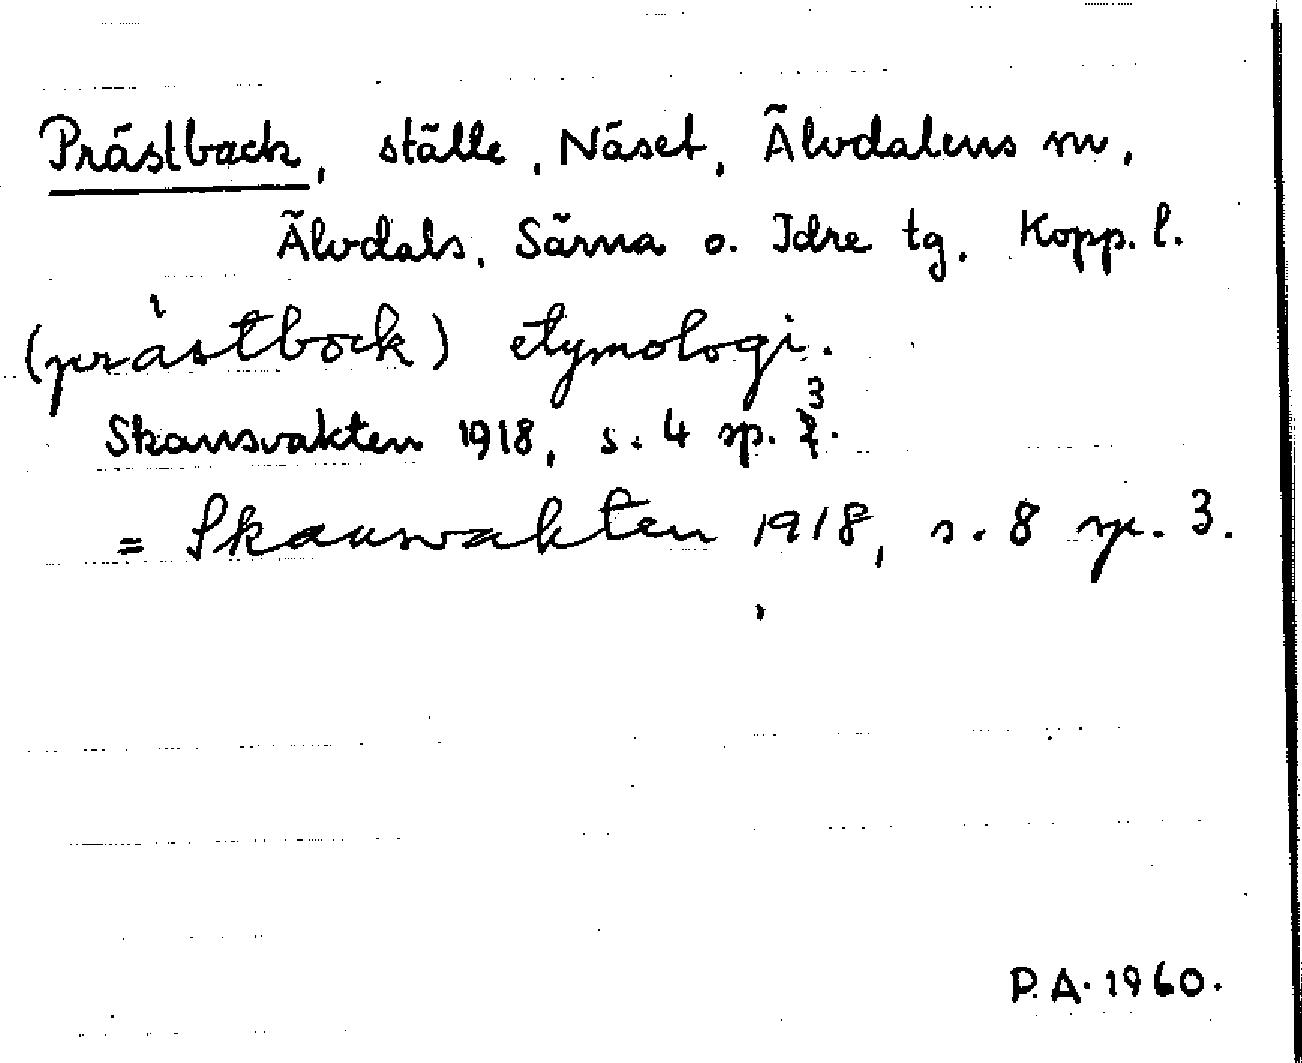 Prästback, ställe, Näset, Älvdalens sn,
Älvdals, Särna o. Idre tg. Kopp. l.
(prästbock) etymologi.
Skansvakten 1918, s. 4 sp. 3.
= Skansvakten 1918, s. 8 sp. 3.
P.A. 1960.